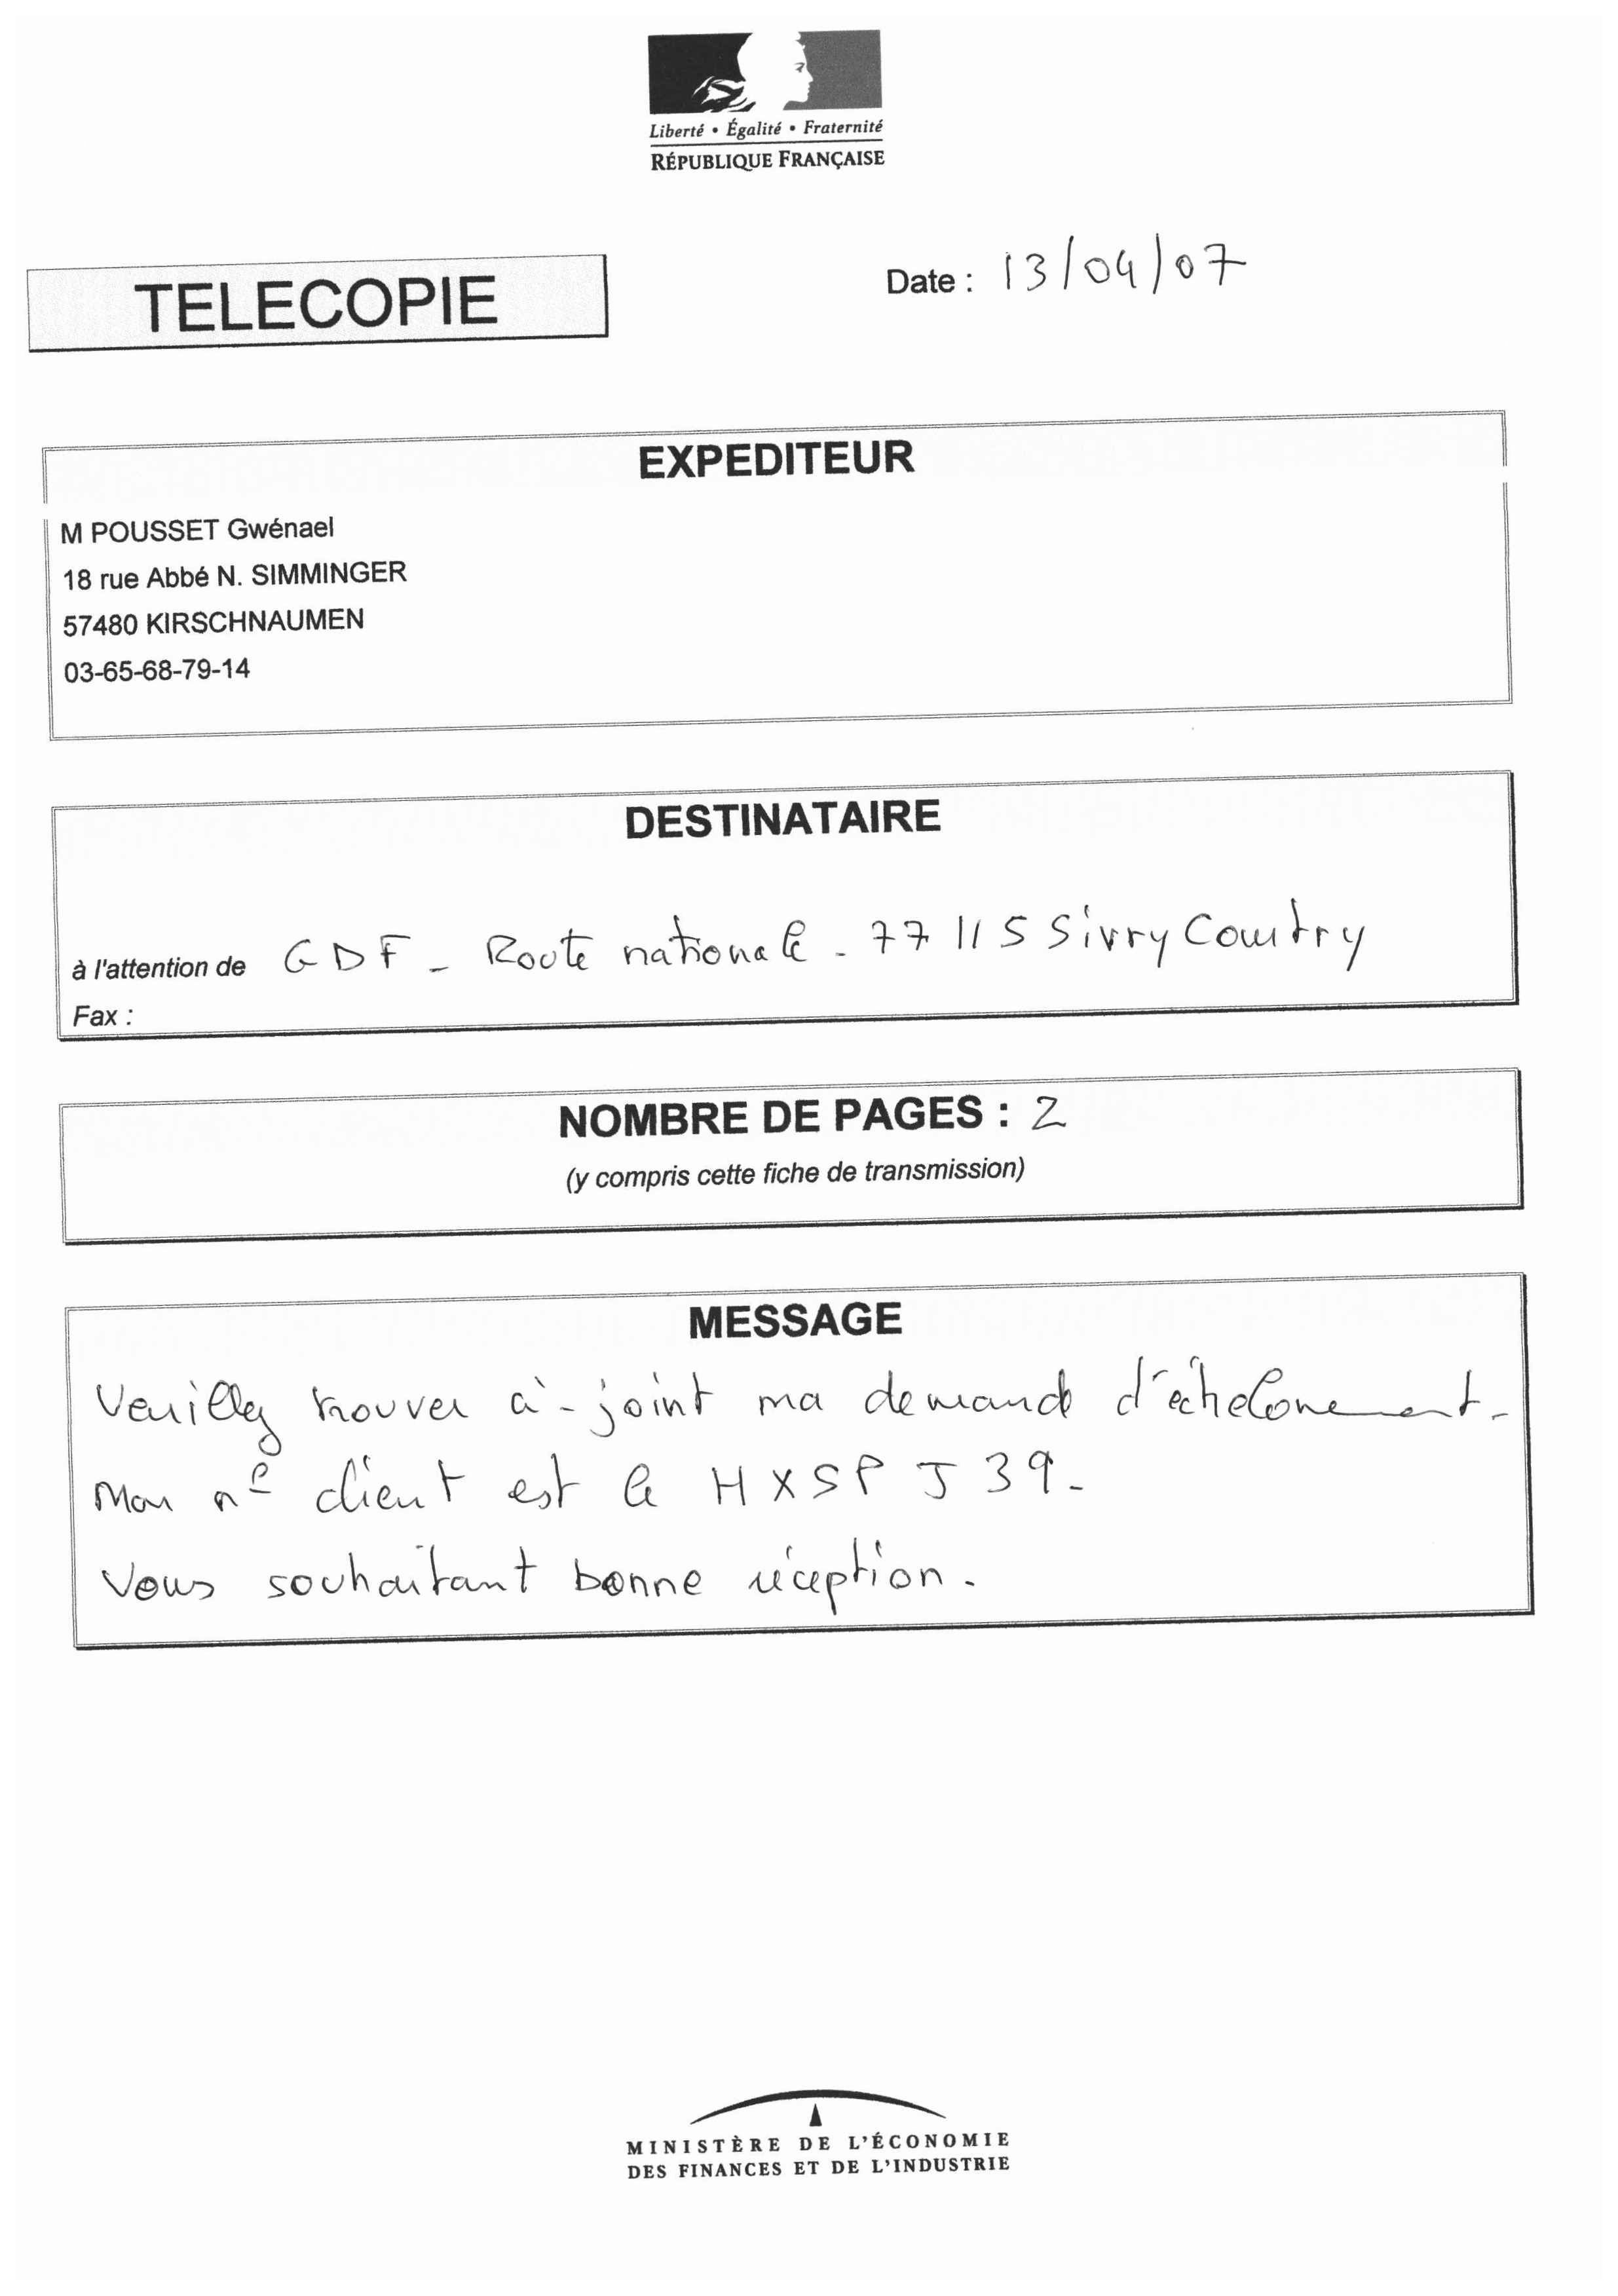 Liberté • Égalité • Fraternité
RÉPUBLIQUE FRANÇAISE
TELECOPIE
Date : 13/04/07
EXPEDITEUR
M POUSSET Gwénael
18 rue Abbé N. SIMMINGER
57480 KIRSCHNAUMEN
03-65-68-79-14
DESTINATAIRE
à l'attention de GDF - Route nationale - 77115 Sivry Courtry
Fax :
NOMBRE DE PAGES : 2
(y compris cette fiche de transmission)
MESSAGE
Veuillez trouver ci-joint ma demande d'échelonement.
Mon n° client est le HXSPJ39.
Vous souhaitant bonne réception.
MINISTÈRE DE L'ÉCONOMIE
DES FINANCES ET DE L'INDUSTRIE